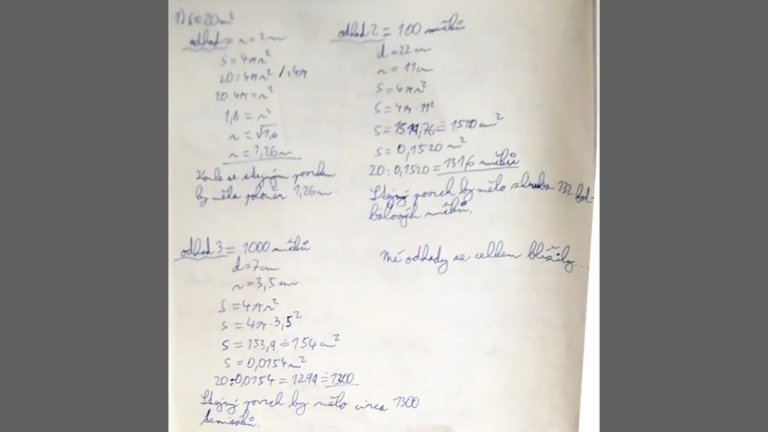 1) S = 20 m²
odhad = r = 2 m
S = 4πr²
20 = 4πr² /:4π
20:4π = r²
1,6 = r²
r = √1,6
r = 1,26 m
Koule se stejným povrchem
by měla poloměr 1,26 m.
odhad 2 = 100 míčů
d = 22 cm
r = 11 cm
S = 4πr²
S = 4π·11²
S = 1519,76 ≐ 1520 cm²
S = 0,1520 m²
20 : 0,1520 = 131,6 míčů
Stejný povrch by mělo zhruba 132 fot-
balových míčů.
odhad 3 = 1000 míčků
d = 7 cm
r = 3,5 cm
S = 4πr²
S = 4π·3,5²
S = 153,9 ≐ 154 cm²
S = 0,0154 m²
20 : 0,0154 = 1299 ≐ 1300
Stejný povrch by mělo circa 1300
tenisáků.
Mé odhady se celkem blížily...